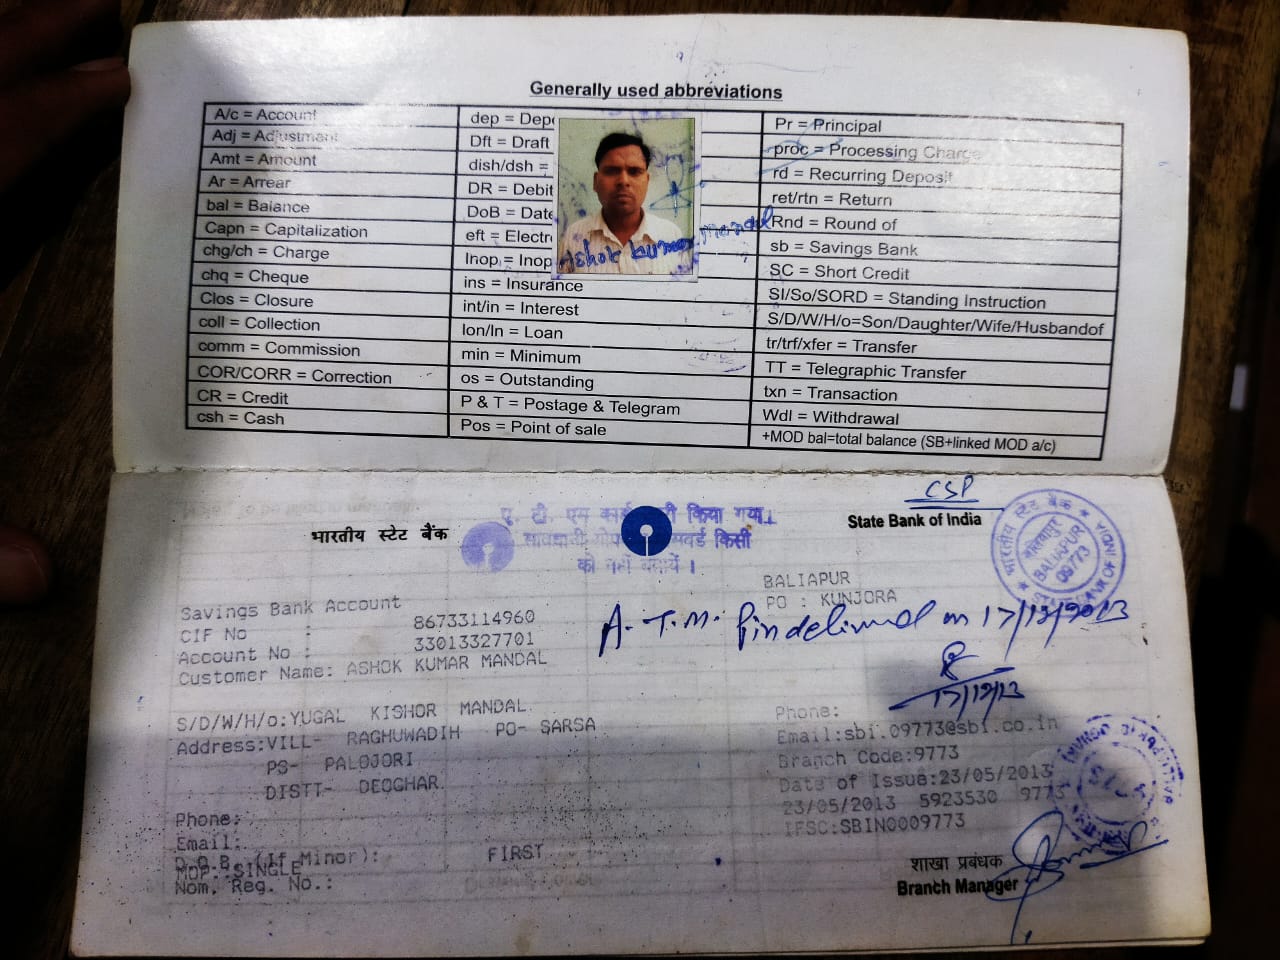 Generally used abbreviations
A/c = Account
Adj = Adjustment
Amt = Amount
Ar = Arrear
bal = Balance
Capn = Capitalization
chg/ch = Charge
chq = Cheque
Clos = Closure
coll = Collection
comm = Commission
COR/CORR = Correction
CR = Credit
csh = Cash
dep = Depo
Dft = Draft
dish/dsh =
DR = Debit
DoB = Date
eft = Electr
Inop = Inop
ins = Insurance
int/in = Interest
lon/ln = Loan
min = Minimum
os = Outstanding
P & T = Postage & Telegram
Pos = Point of sale
Pr = Principal
proc = Processing Charge
rd = Recurring Deposit
ret/rtn = Return
Rnd = Round of
sb = Savings Bank
SC = Short Credit
SI/So/SORD = Standing Instruction
S/D/W/H/o=Son/Daughter/Wife/Husbandof
tr/trf/xfer = Transfer
TT = Telegraphic Transfer
txn = Transaction
Wdl = Withdrawal
+MOD bal=total balance (SB+linked MOD a/c)
Ashok kumar Mandal
CSP
भारतीय स्टेट बैंक
State Bank of India
ए. टी. एम किया गया।
किसी
को नहीं बतायें।
भारतीय स्टेट बैंक
बलियापुर
BALIAPUR
09773
STATE BANK OF INDIA
BALIAPUR
PO : KUNJORA
A.T.M. Pin delivered on 17/12/2013
17/12/13
Savings Bank Account
CIF No : 86733114960
Account No : 33013327701
Customer Name: ASHOK KUMAR MANDAL
S/D/W/H/o:YUGAL KISHOR MANDAL
Address:VILL- RAGHUWADIH PO- SARSA
PS- PALOJORI
DISTT- DEOGHAR.
Phone:
Email:
D.O.B. (If Minor):
MOP: SINGLE FIRST
Nom. Reg. No.:
Phone:
Email:sbi.09773@sbi.co.in
Branch Code:9773
Date of Issue:23/05/2013
23/05/2013 5923530 9773
IFSC:SBIN0009773
शाखा प्रबंधक
Branch Manager